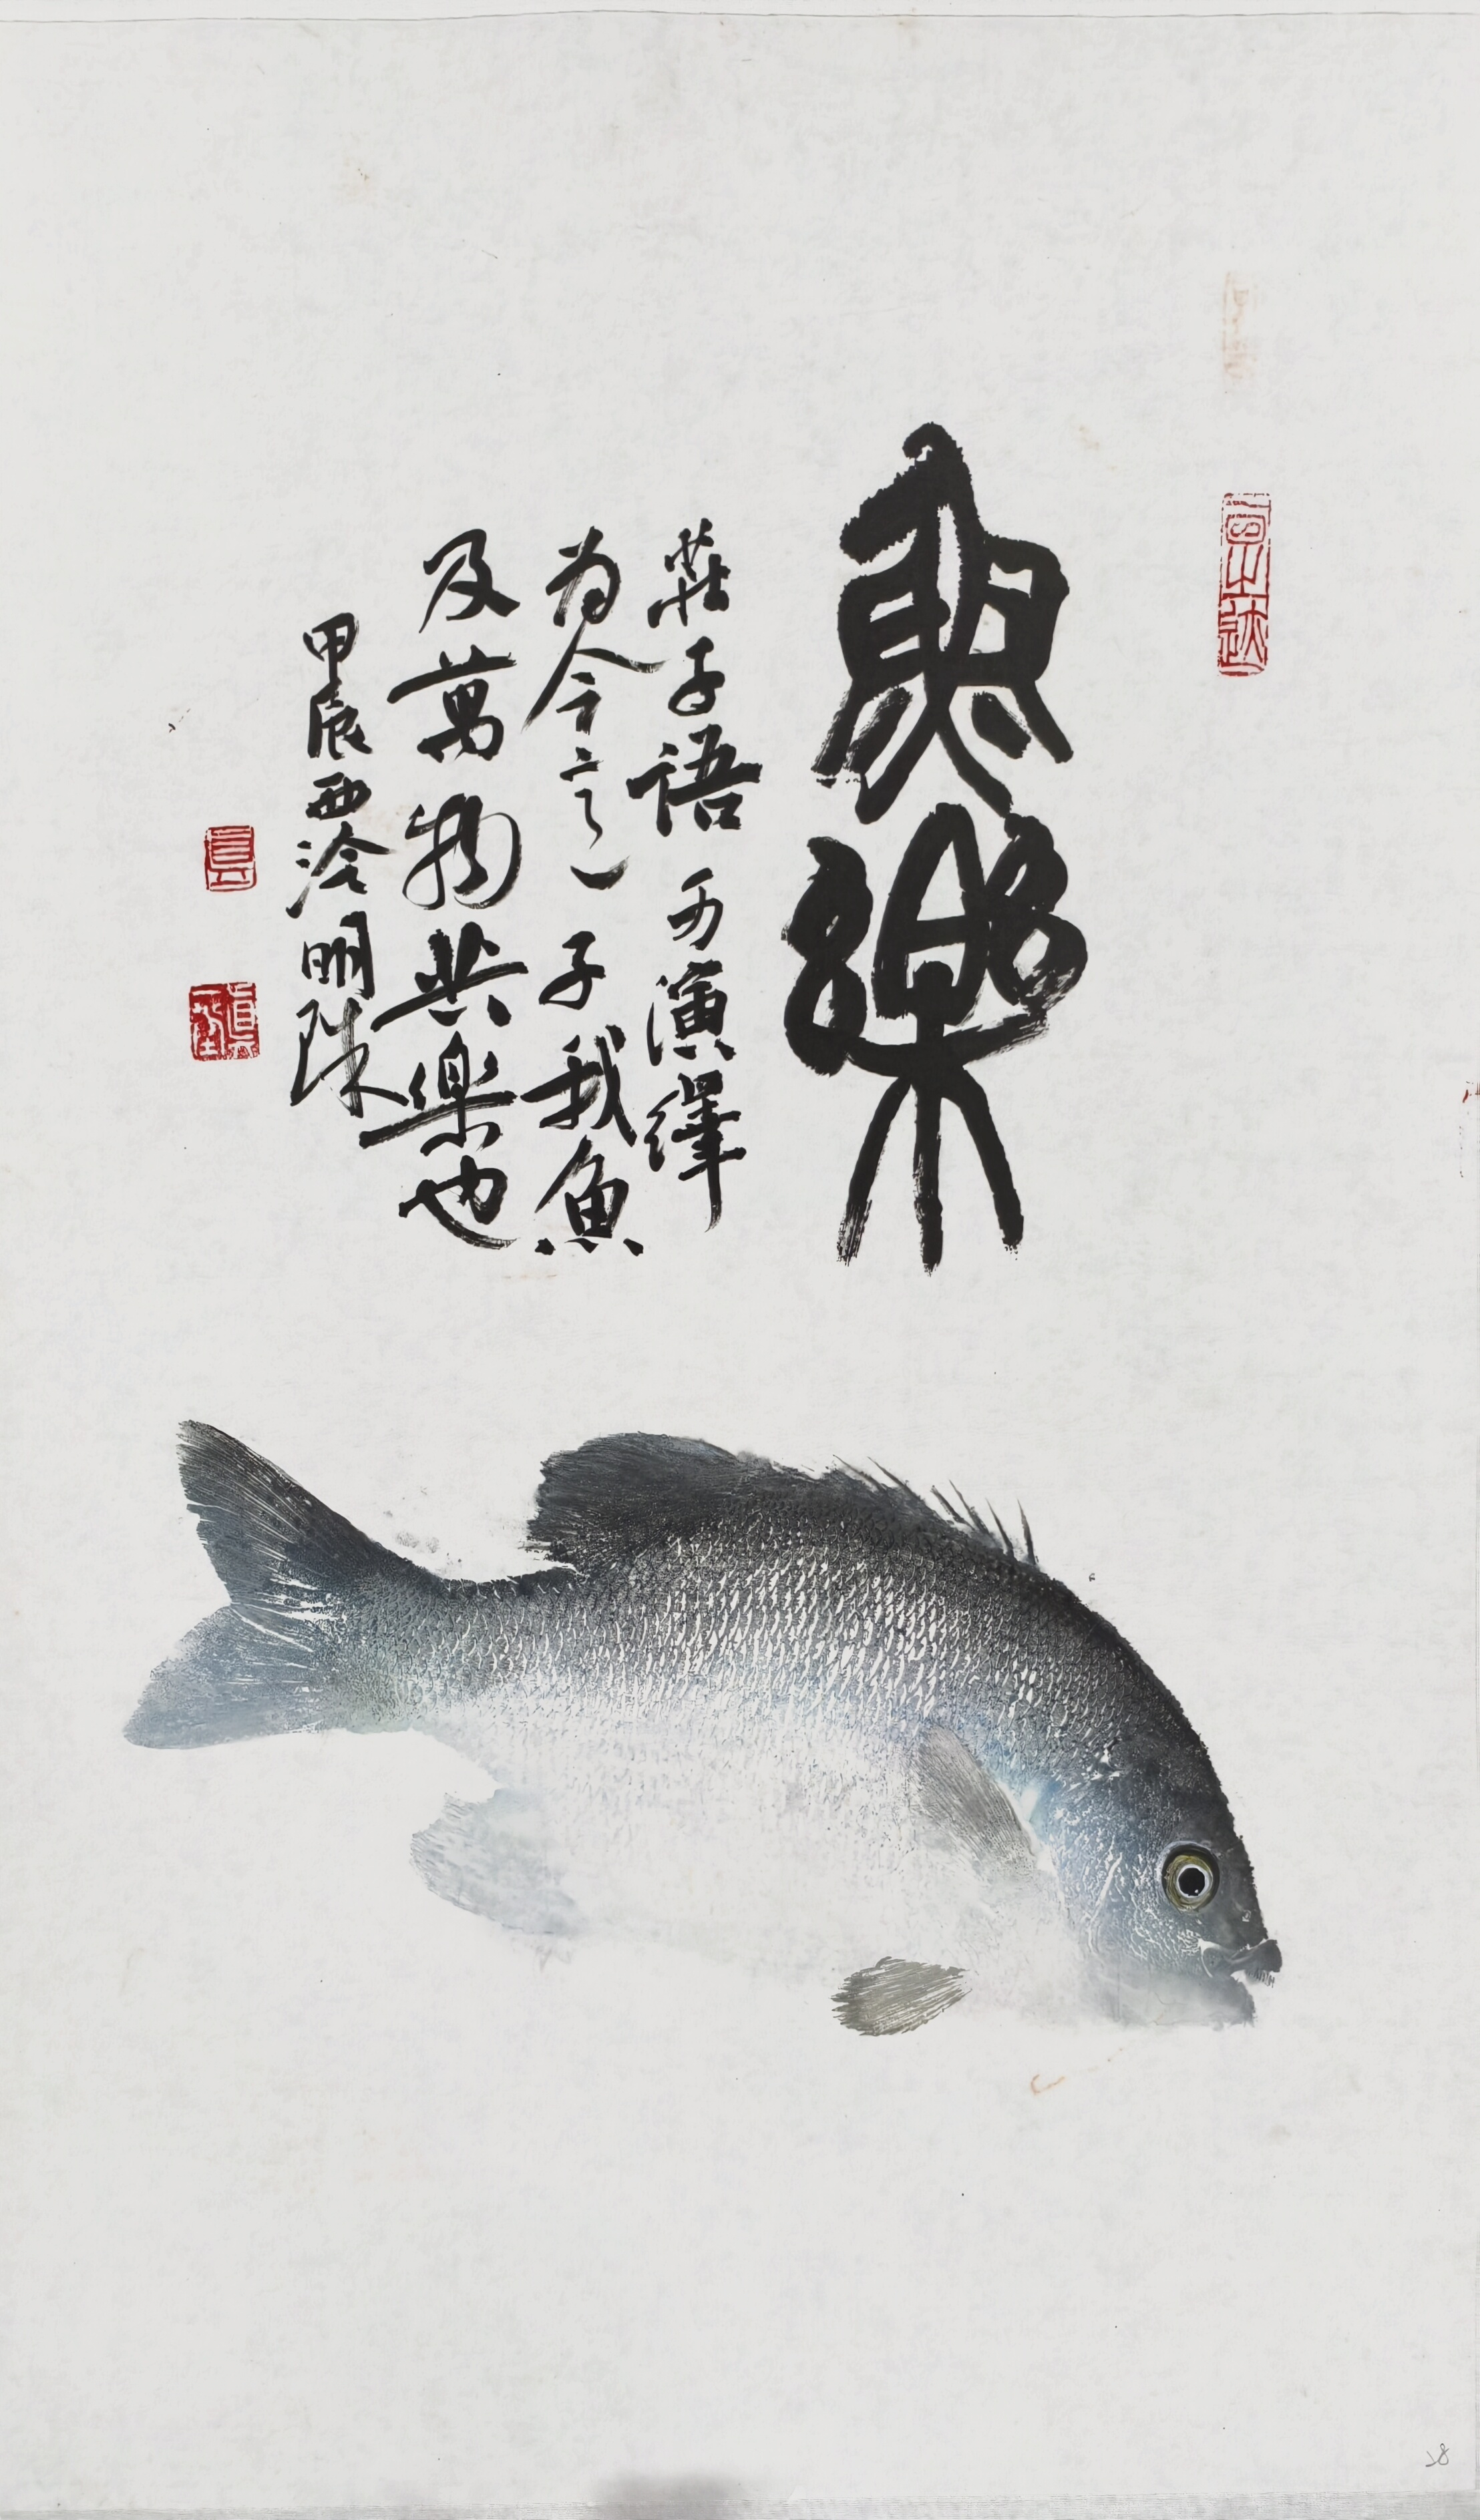 魚樂
莊子語 可演繹
为今之 子我魚
及萬物共樂也
甲辰西泠明珠
28